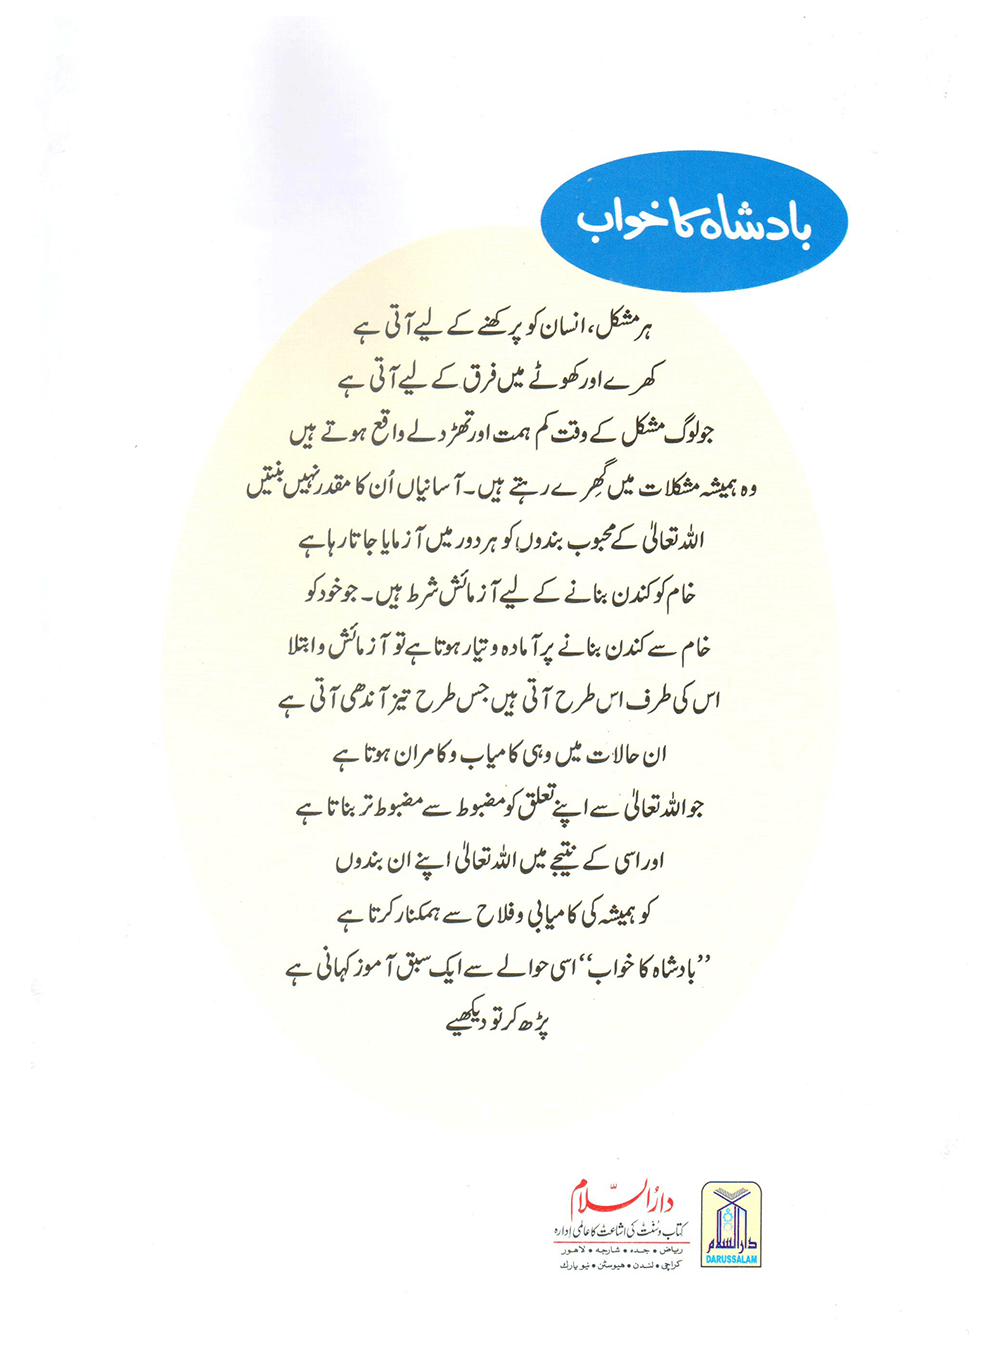 بادشاہ کا خواب
ہر مشکل، انسان کو پرکھنے کے لیے آتی ہے
کھرے اور کھوٹے میں فرق کے لیے آتی ہے
جو لوگ مشکل کے وقت کم ہمت اور تھڑدلے واقع ہوتے ہیں
وہ ہمیشہ مشکلات میں گھِرے رہتے ہیں۔ آسانیاں اُن کا مقدر نہیں بنتیں
اللہ تعالیٰ کے محبوب بندوں کو ہر دور میں آزمایا جاتا رہا ہے
خام کو کندن بنانے کے لیے آزمائش شرط ہیں۔ جو خود کو
خام سے کندن بنانے پر آمادہ و تیار ہوتا ہے تو آزمائش و ابتلا
اس کی طرف اس طرح آتی ہیں جس طرح تیز آندھی آتی ہے
ان حالات میں وہی کامیاب و کامران ہوتا ہے
جو اللہ تعالیٰ سے اپنے تعلق کو مضبوط سے مضبوط تر بناتا ہے
اور اسی کے نتیجے میں اللہ تعالیٰ اپنے ان بندوں
کو ہمیشہ کی کامیابی و فلاح سے ہمکنار کرتا ہے
”بادشاہ کا خواب“ اسی حوالے سے ایک سبق آموز کہانی ہے
پڑھ کر تو دیکھیے
دارُالسّلام
کتاب و سُنّت کی اشاعت کا عالمی اِدارہ
ریاض • جدہ • شارجہ • لاہور
کراچی • لندن • ہیوسٹن • نیو یارک
دارالسلام
DARUSSALAM